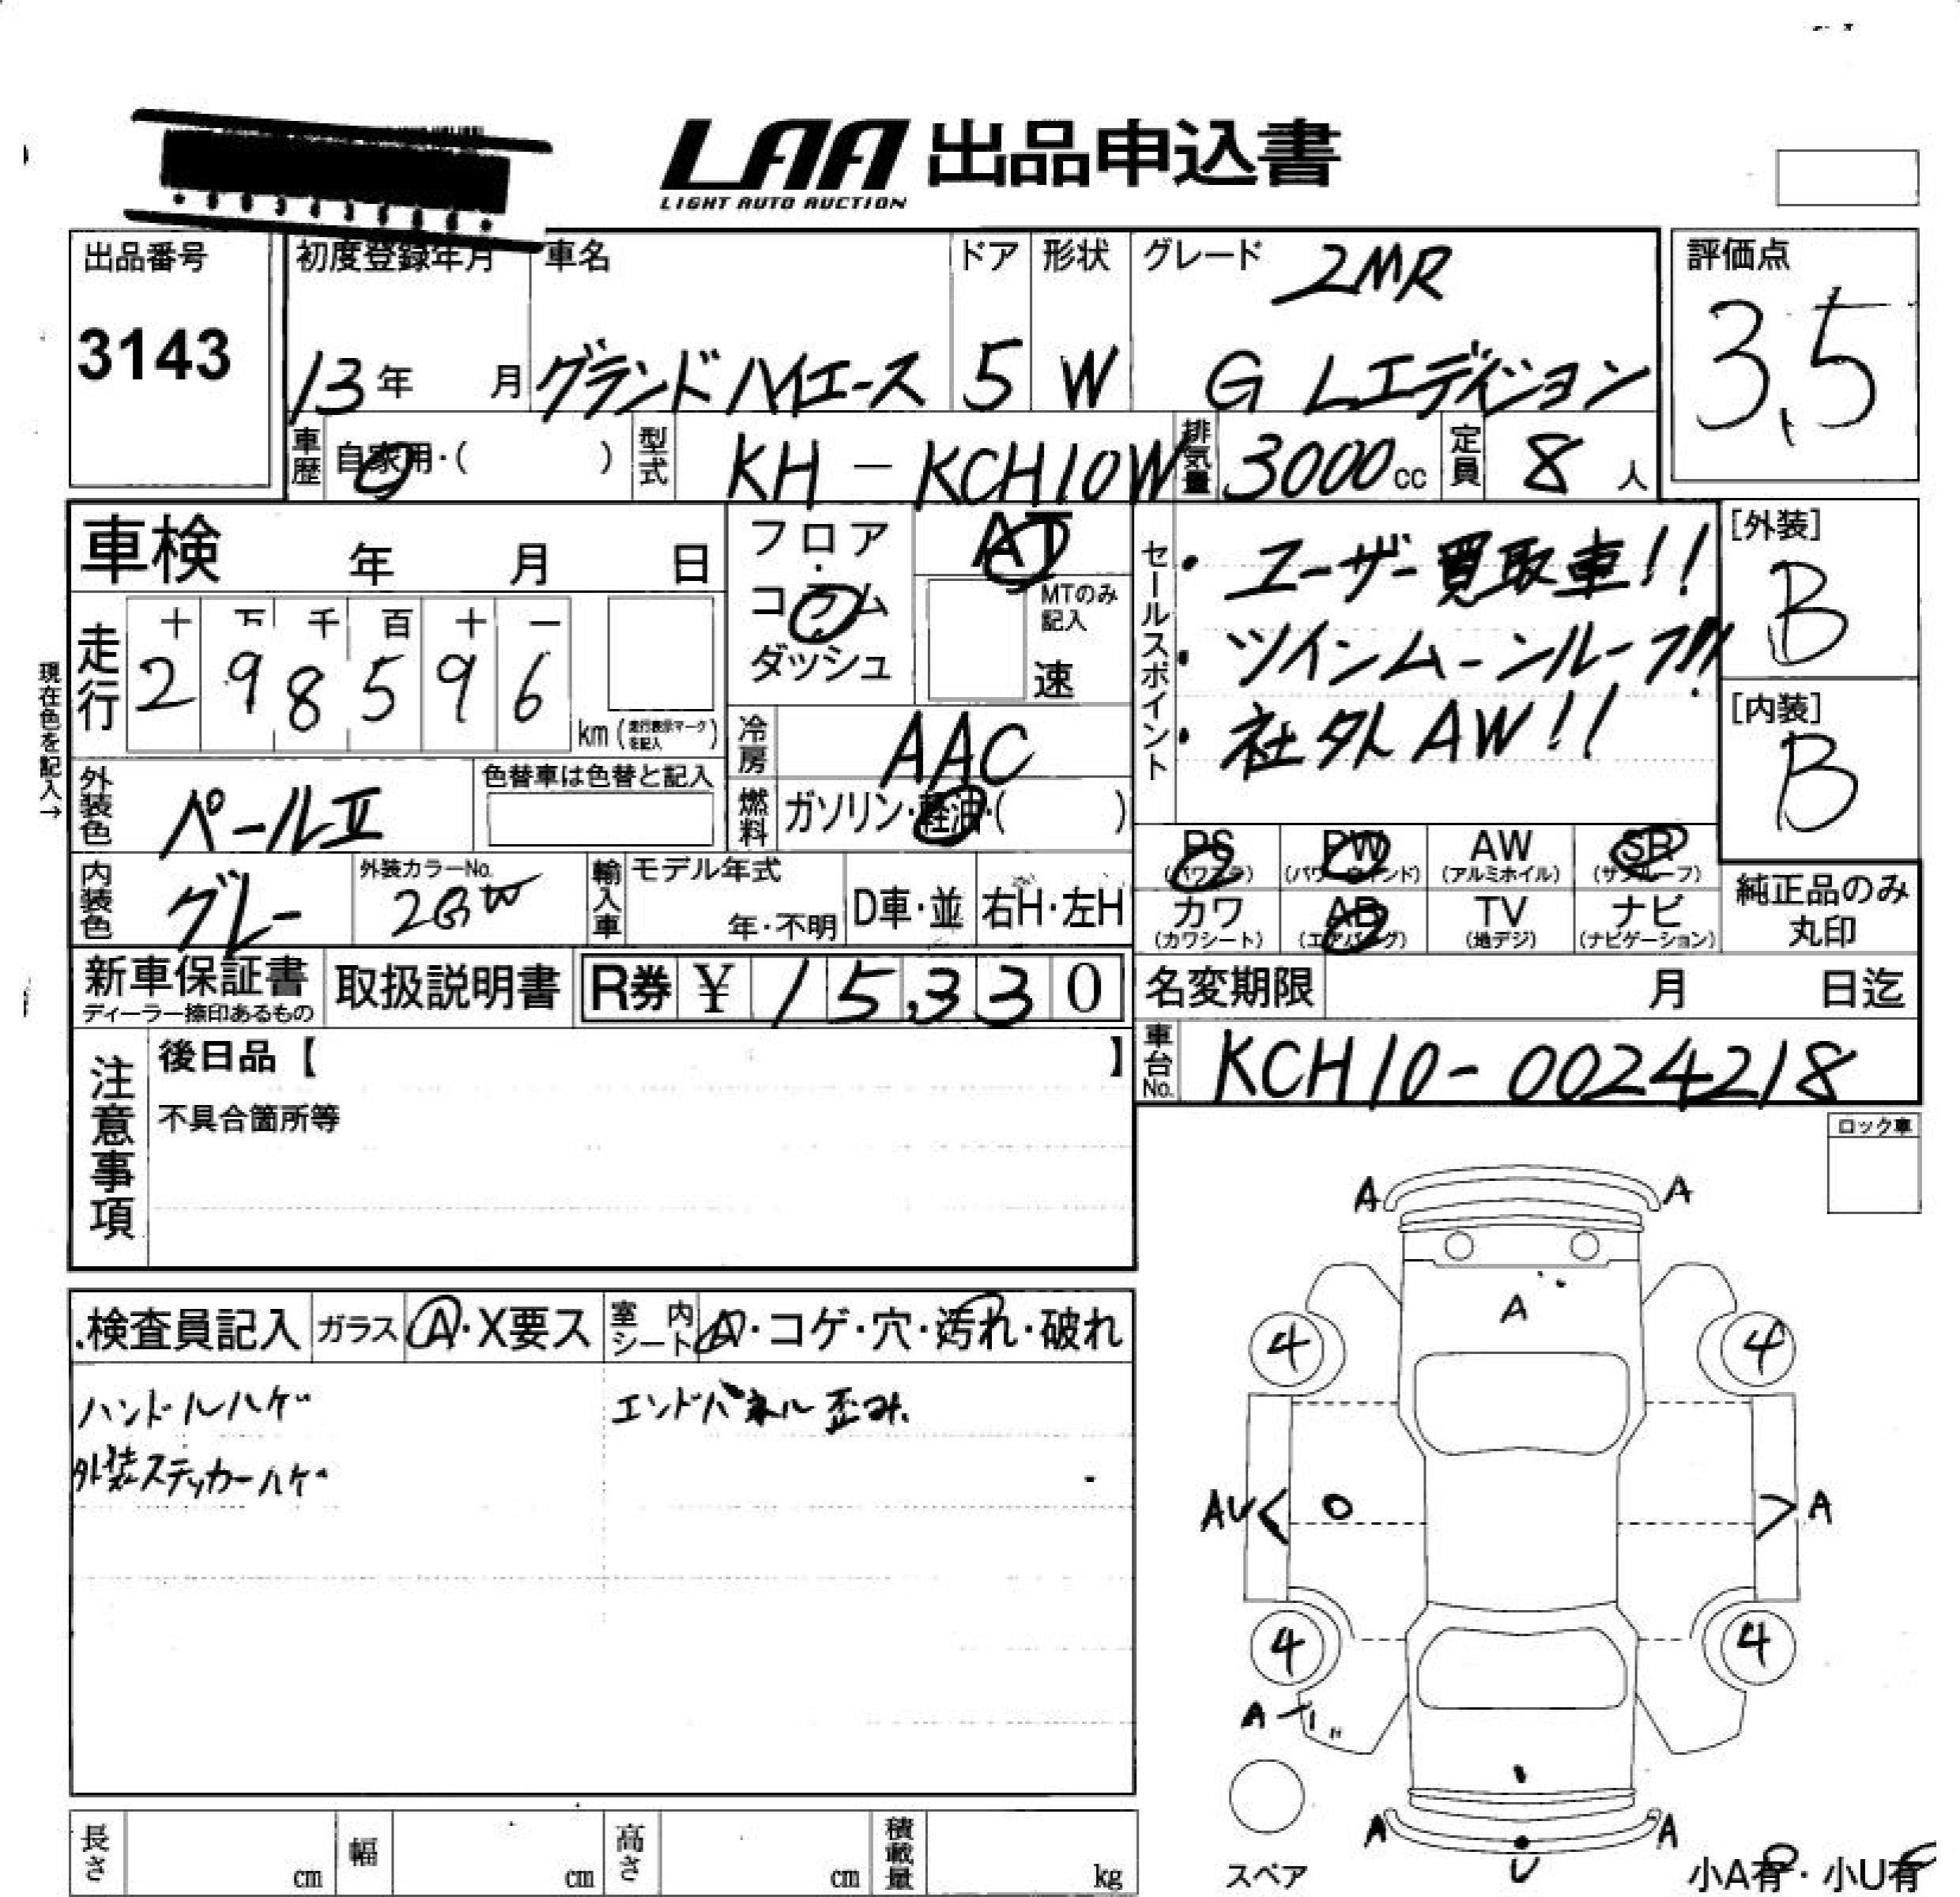 LAA 出品申込書
LIGHT AUTO AUCTION
出品番号
3143
初度登録年月
13年 月
車名
グランドハイエース
ドア
5
形状
W
グレード
2MR
G Lエディション
評価点
3.5
車歴
自家用・( )
型式
KH-KCH10W
排気量
3000cc
定員
8人
車検 年 月 日
フロア・コラム
ダッシュ
AT
MTのみ記入
速
セールスポイント
・ユーザー買取車!!
・ツインムーンルーフ!!!
・社外AW!!
[外装]
B
[内装]
B
現在色を記入→
走行
十 万 千 百 十 一
2 9 8 5 9 6
km (走行表示マークを記入)
冷房
AAC
外装色
パールⅡ
色替車は色替と記入
燃料
ガソリン・軽油・( )
PS (パワステ)
PW (パワーウィンド)
AW (アルミホイル)
SR (サンルーフ)
カワ (カワシート)
AB (エアバッグ)
TV (地デジ)
ナビ (ナビゲーション)
純正品のみ丸印
内装色
グレー
外装カラーNo.
輸入車
モデル年式
年・不明
D車・並
右H・左H
新車保証書
ディーラー捺印あるもの
取扱説明書
R券 ¥ 15,330
名変期限 月 日迄
車台No.
KCH10-0024218
注意事項
後日品【 】
不具合箇所等
ロック車
検査員記入
ガラス
A・X要ス
室内シート
A・コゲ・穴・汚れ・破れ
ハンドルハゲ
エンドパネル歪み
外装ステッカーハゲ
A A
A
4 4
AU < > A
4 4
A
A A
U
スペア
小A有・小U有
長さ cm
幅 cm
高さ cm
積載量 kg